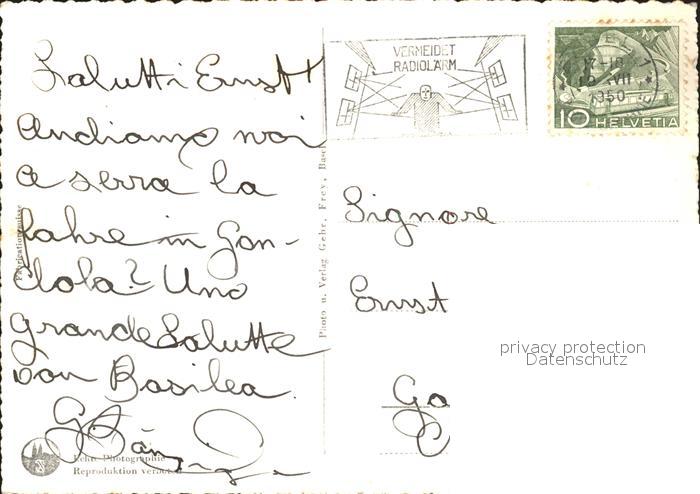 Salutti Ernst!
Andiamo noi
a serra la
fahre in Gon-
dola? Uno
grande Salutte
von Basilea.
Echte Photographie
Reproduktion
Fabrication suisse
Photo u. Verlag Gebr. Frey, Basel
VERMEIDET
RADIOLÄRM
17-18
VII
1950
10 HELVETIA
Signore
Ernst
privacy protection
Datenschutz